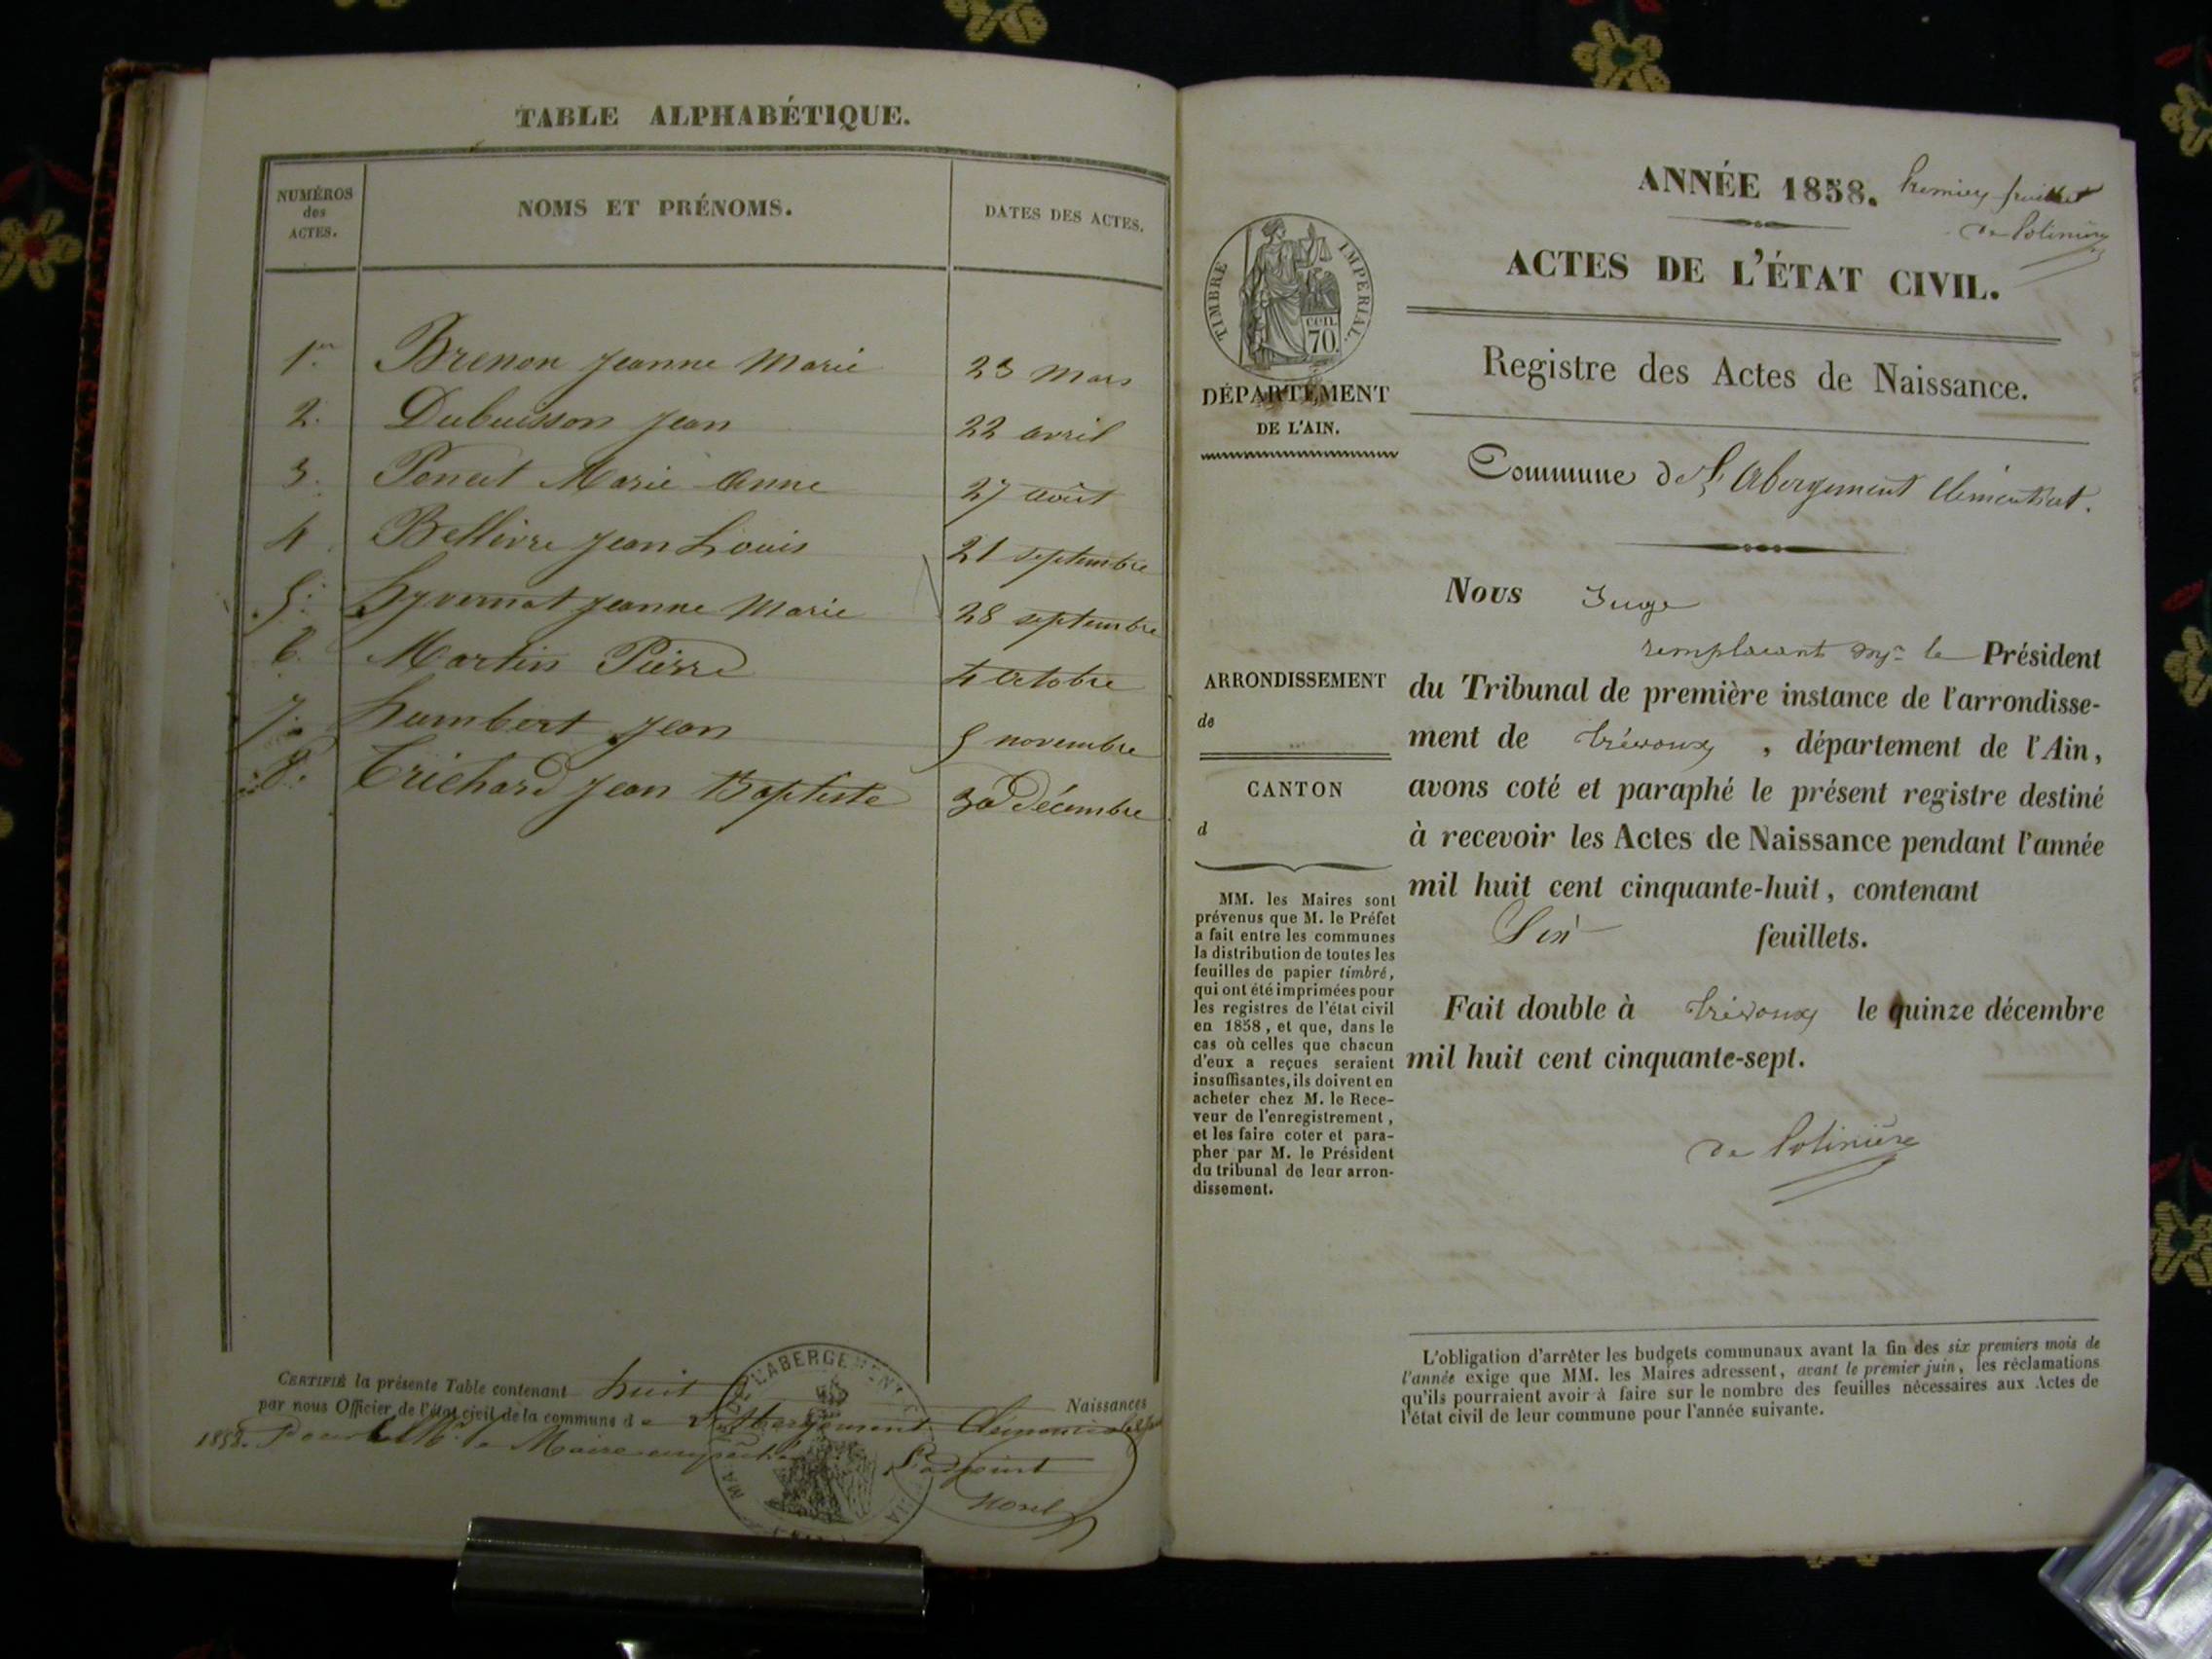 TABLE ALPHABÉTIQUE.
NUMÉROS
des
ACTES.
NOMS ET PRÉNOMS.
DATES DES ACTES.
1er. Brenon Jeanne Marie 23 Mars
2. Dubuisson Jean 22 avril
3. Marie Anne 27 août
4. Jean Louis 21 septembre
5. Hyvernat Jeanne Marie 28 septembre
6. Martin Pierre 4 Octobre
7. Humbert Jean 5 novembre
8. Trichard Jean Baptiste 30 Décembre
CERTIFIÉ la présente Table contenant huit Naissances
par nous Officier de l'état civil de la commune de
Pour Mr. le Maire empêché
L'adjoint
Morel
ANNÉE 1858. Premier feuillet
de Polinière
ACTES DE L'ÉTAT CIVIL.
Registre des Actes de Naissance.
TIMBRE IMPERIAL.
cen.
70.
DÉPARTEMENT
DE L'AIN.
Commune de L'Abergement Clémentiat.
Nous Juge
remplacant Mr. le Président
du Tribunal de première instance de l'arrondisse-
ment de Trévoux, département de l'Ain,
avons coté et paraphé le présent registre destiné
à recevoir les Actes de Naissance pendant l'année
mil huit cent cinquante-huit, contenant
Six feuillets.
Fait double à Trévoux le quinze décembre
mil huit cent cinquante-sept.
de Polinière
ARRONDISSEMENT
de
CANTON
d
MM. les Maires sont
prévenus que M. le Préfet
a fait entre les communes
la distribution de toutes les
feuilles de papier timbré,
qui ont été imprimées pour
les registres de l'état civil
en 1858, et que, dans le
cas où celles que chacun
d'eux a reçues seraient
insuffisantes, ils doivent en
acheter chez M. le Rece-
veur de l'enregistrement,
et les faire coter et para-
pher par M. le Président
du tribunal de leur arron-
dissement.
L'obligation d'arrêter les budgets communaux avant la fin des six premiers mois de
l'année exige que MM. les Maires adressent, avant le premier juin, les réclamations
qu'ils pourraient avoir à faire sur le nombre des feuilles nécessaires aux Actes de
l'état civil de leur commune pour l'année suivante.